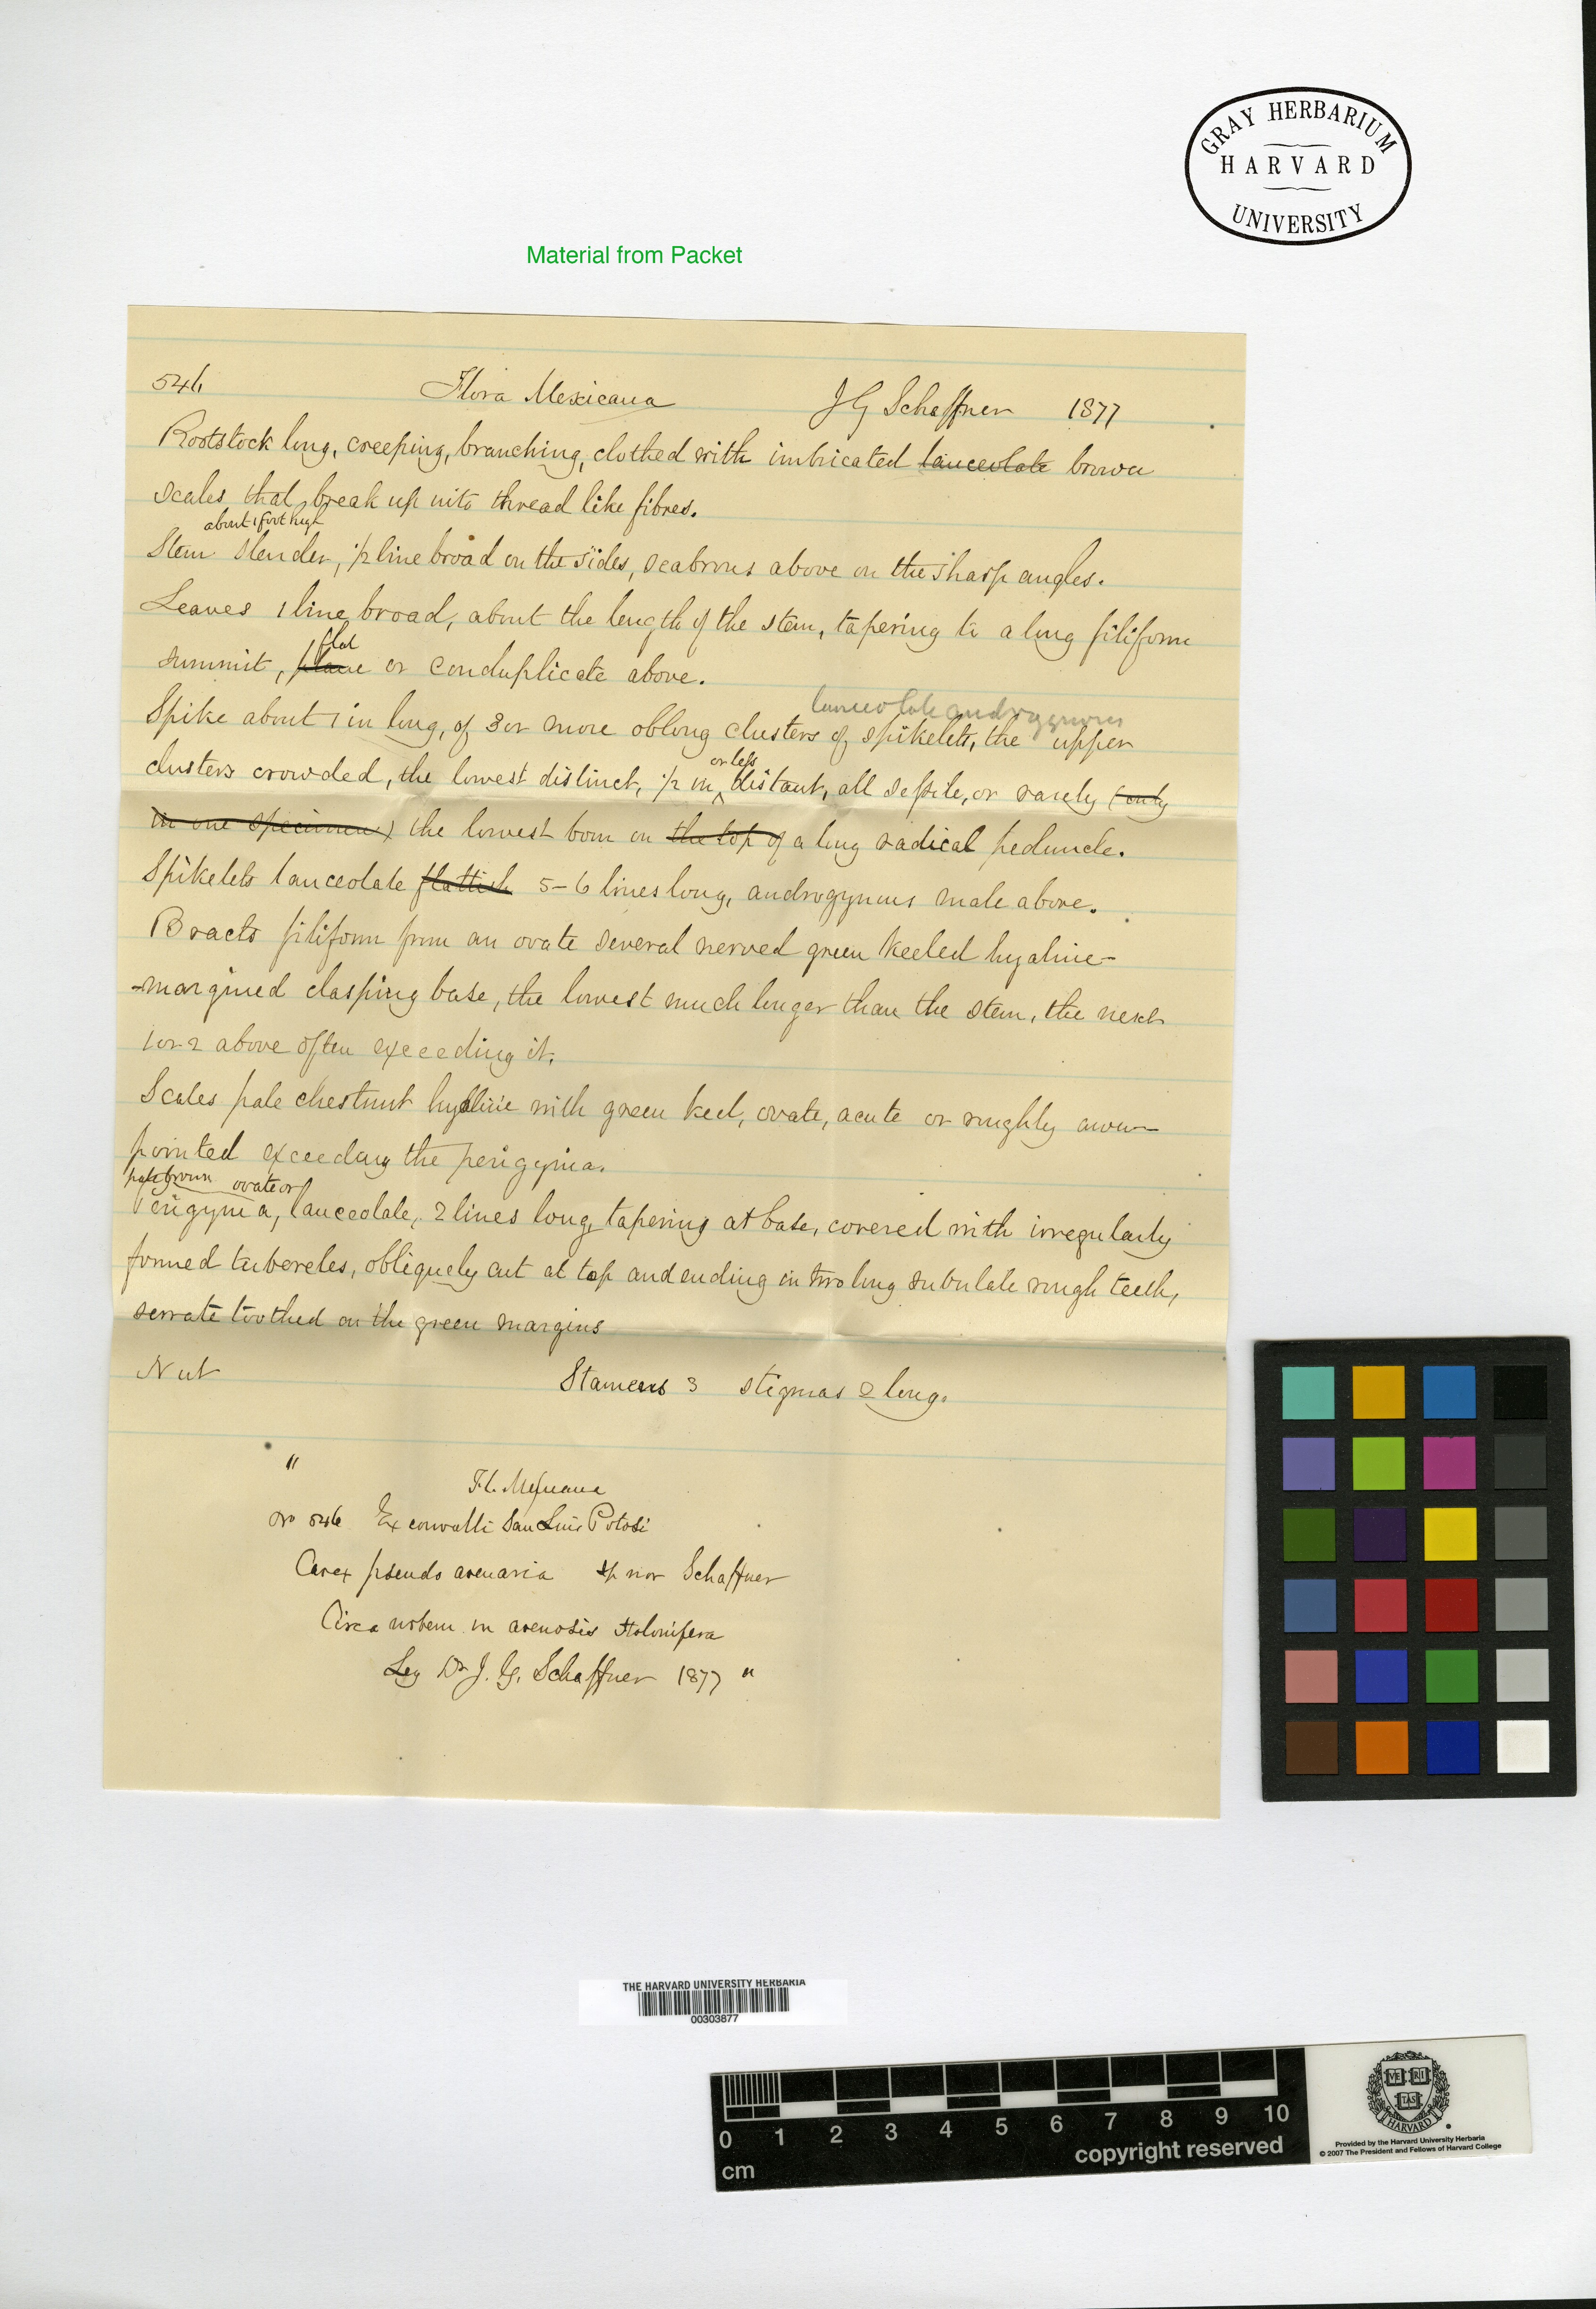 GRAY HERBARIUM
HARVARD
UNIVERSITY
Material from Packet
546 Flora Mexicana J G Schaffner 1877
Rootstock long, creeping, branching, clothed with imbricated lanceolate brown
scales that break up into thread like fibres.
about 1 foot high
Stem slender, 1/2 line broad on the sides, scabrous above on the sharp angles.
Leaves 1 line broad, about the length of the stem, tapering to a long filiform
flat
summit, plane or conduplicate above.
lanceolate androgynous
Spike about 1 in long, of 3 or more oblong clusters of spikelets, the upper
or less
clusters crowded, the lowest distinct, 1/2 in distant, all sessile, or rarely (only
in one specimen) the lowest born on the top of a long radical peduncle.
Spikelets lanceolate flattish 5-6 lines long, androgynous male above.
Bracts filiform from an ovate several nerved green keeled hyaline-
-margined clasping base, the lowest much longer than the stem, the next
1 or 2 above often exceeding it.
Scales pale chestnut hyaline with green keel, ovate, acute or roughly awn-
pointed exceeding the perigynia.
pale brown ovate or
Perigynia, lanceolate, 2 lines long, tapering at base, covered with irregularly
formed tubercles, obliquely cut at top and ending in two long subulate rough teeth,
serrate toothed on the green margins
Nut Stamens 3 stigmas 2 long.
"
Fl. Mexicana
No 546 Ex convalli San Luis Potosi
Carex pseudo arenaria sp nov Schaffner
Circa urbem in arenosis stolonifera
Leg Dr J. G. Schaffner 1877 "
THE HARVARD UNIVERSITY HERBARIA
00303877
0 1 2 3 4 5 6 7 8 9 10
cm copyright reserved
VE RI
TAS
HARVARD
Provided by the Harvard University Herbaria
© 2007 The President and Fellows of Harvard College